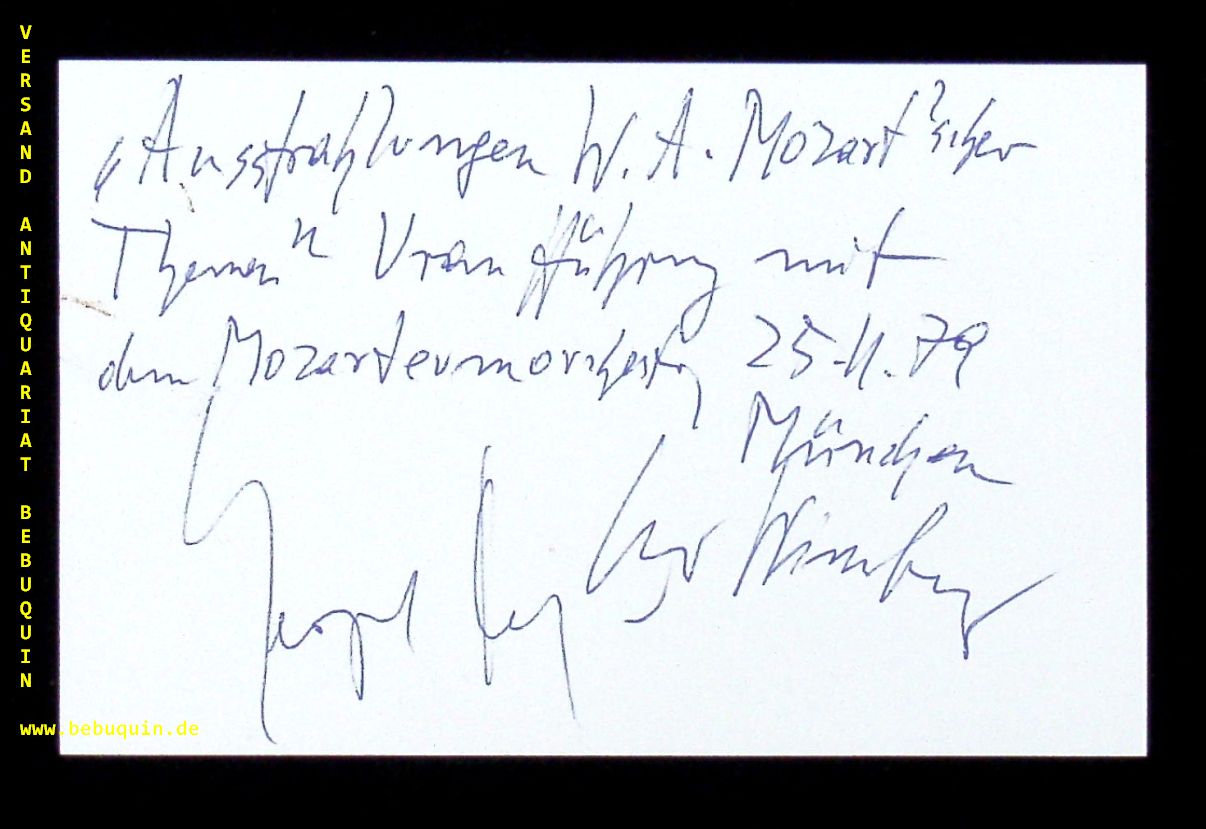 VERSAND ANTIQUARIAT BEBUQUIN
„Ausstrahlungen W. A. Mozart'scher
Themen" Uraufführung mit
dem Mozarteumorchester 25.11.79
München
www.bebuquin.de